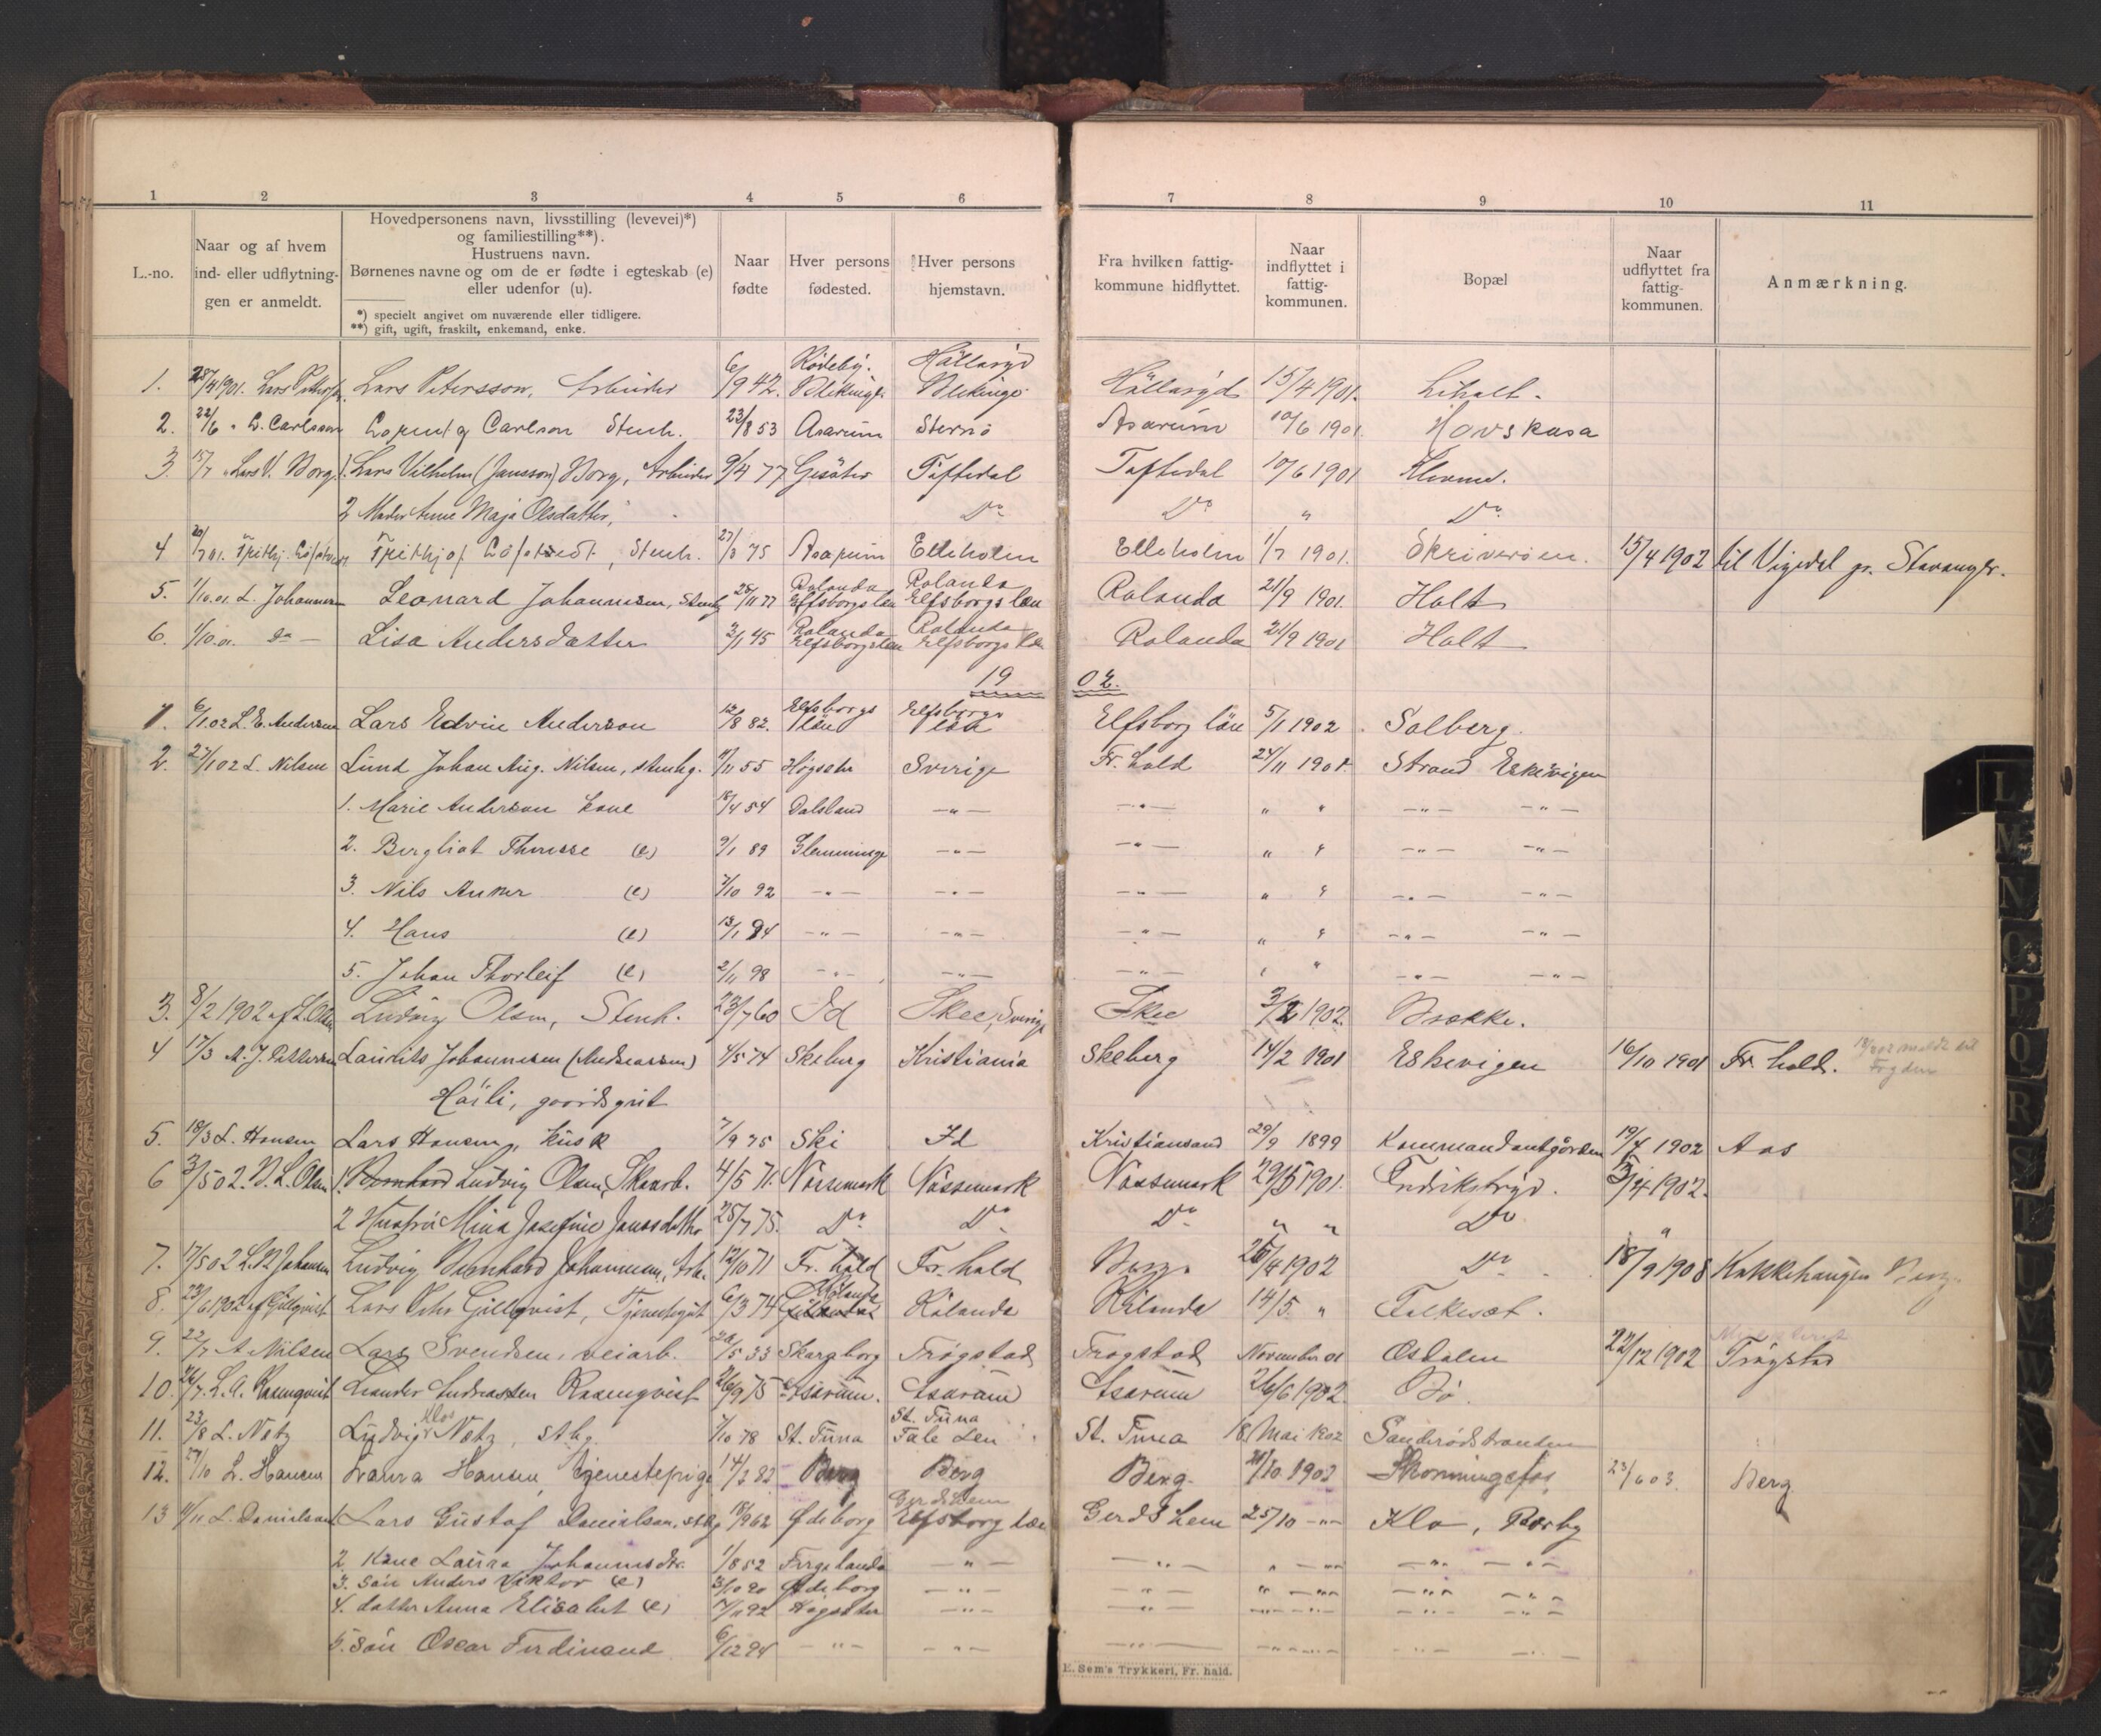 1 2 3 4 5 6 7 8 9 10 11
L.-no.
Naar og af hvem ind- eller udflytningen er anmeldt.
Hovedpersonens navn, livsstilling (levevei)*) og familiestilling**).
Hustruens navn.
Børnenes navne og om de er fødte i egteskab (e) eller udenfor (u).
*) specielt angivet om nuværende eller tidligere.
**) gift, ugift, fraskilt, enkemand, enke.
Naar fødte
Hver persons fødested.
Hver persons hjemstavn.
Fra hvilken fattigkommune hidflyttet.
Naar indflyttet i fattigkommunen.
Bopæl
Naar udflyttet fra fattigkommunen.
Anmærkning.
1. 28/4 1901. Lars Petersson, Arbeider 6/9 42. Rödeby. Blekinge Hällaryd Blekinge Hällaryd 15/4 1901. Liholt.
2. 22/6 " L. Carlsson Lorentz Carlson Stenh. 23/8 53 Asarum Sternö Asarum 10/6 1901. Hovskasa
3. 15/7 " Lars V. Borg 1. Lars Vilhelm (Jansson) Borg, Arbeider 9/4 77 Gesäter Töftedal Töftedal 10/6 1901
2 Moder Anne Maja Olsdatter, Do Do " Do
4 20/7 01. Frithjof Löfstedt, Stenh. 27/3 75 Asarum Elleholm Elleholm 1/7 1901. Skriverøen. 15/4 1902 til Vigedal pr. Stavanger.
5. 1/10.01. L. Johannesen Leonard Johannesen, Stenh. 25/11 77 Rølanda Elfsborgs län Rølanda Elfsborgs län Rølanda 21/9 1901. Holt
6. 1/10.01. Do — Lisa Andersdatter 3/1 45 Rølanda Elfsborgs län Rølanda Elfsborgs län Rølanda 21/9 1901 Holt
1902.
1. 6/1.02 L. E. Anderson Lars Edvin Anderson 12/8 82. Elfsborgs län Elfsborgs län Elfsborg län 5/1 1902. Solberg.
2. 27/1 02 L. Nilsen Lund Johan Aug. Nilsen, stenhg. 11/11 55 Högsäter Sverige Fr. hald 24/11 1901. Strand Eskevigen
1. Marie Anderson kone 18/4 54 Dalsland —"— —"— " " —"— —"—
2. Bergliot Thineze (e) 9/1 89 Glemminge —"— —"— " " —"— —"—
3. Nils Anker (e) 7/10 92 —"— —"— —"— " " —"— —"—
4. Hans (e) 13/1 94 —"— —"— —"— " " —"— —"—
5. Johan Thorleif (e) 2/11 98 —"— —"— —"— " " —"— —"—
3. 8/2 1902 af L. Olsen Ludvig Olsen, Stenh. 23/7 60 Id Skee, Sverige Skee 3/2 1902. Brække.
4 17/3 A. J. Pettersen Laurits Johannesen (Andreassen) 4/5 74 Skeberg Kristiania Skeberg 14/2 1901 Eskevigen 16/10 1901 Fr. hald.
Høili, gaardsgut
5. 18/3 L. Hansen Lars Hansen, kusk 7/9 75 Ski Id Kristiansand 29/9 1899 Kommandantgården 19/4 1902 Aas
6 3/5 02. B. L. Olsen 1. Bernhard Ludvig Olsen, Skoarb. 4/5 71. Nössemark Nössemark Nössemark 29/5 1901. Fredriksfryd. 3/4 1902.
2 Hustru Mina Josefine Jonasdatter 25/7 75. Do Do Do " " Do "
7. 17/5 02 L. B. Johansen Ludvig Bernhard Johannesen, Arb. 12/10 71 Fr. hald Fr. hald Berg. 26/4 1902 Do 18/9 1908 Kakkehaugen Berg.
8. 23/6 1902 af Gillqvist Lars Peter Gillqvist, Tjenestegut 6/3 74 Rölanda Rölanda Rölanda 14/5 " Falkeset.
9. 22/7 A. Nilsen Lars Svendsen, veiarb. 20/5 33 Skaraborg Trøgstad Trøgstad November 01 Øsdalen 22/12 1902 Trøgstad
10. 26/7. L. A. Rosenqvist Leander Andreassen Rosenqvist 26/9 75 Asarum. Asarum Asarum 26/6 1902. Bö.
11. 23/8 L. Netz Ludvig Netz, sthg. 7/10 78 St. Tuna St. Tuna Fale Len St. Tuna 18 Mai 1902 Sanderødstranden
12. 27/10 L. Hansen Laura Hansen, tjenestepige 14/2 82 Berg Berg Berg. 20/10 1902 Skonningsfos 23/6 03. Berg.
13 11/11 L. Danielsen 1. Lars Gustaf Danielsen, sthg. 18/9 62 Ødeborg Gerdshem Elfsborg Län Gerdshem 25/10 —"— Klo, Rørby
2. Kone Laura Johannesdtr. 1/8 52 Fergelanda —"— —"— " —"— —"— —"—
3. Søn Anders Viktor (e) 3/10 90 Ødeborg —"— —"— " —"— —"— —"—
4. datter Anna Elisabet (e) 7/11 92 Högsäter —"— —"— —"— —"— —"—
5. Søn Oscar Ferdinand 6/12 94 —"— —"— —"— —"— —"— —"—
E. Sem's Trykkeri, Fr. hald.
L
M
N
O
P
Q
R
S
T
U
V